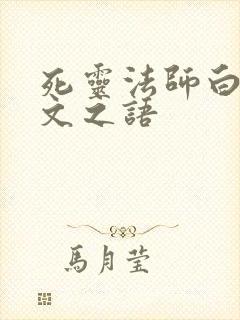 死靈法師白
文之語
馬月莹